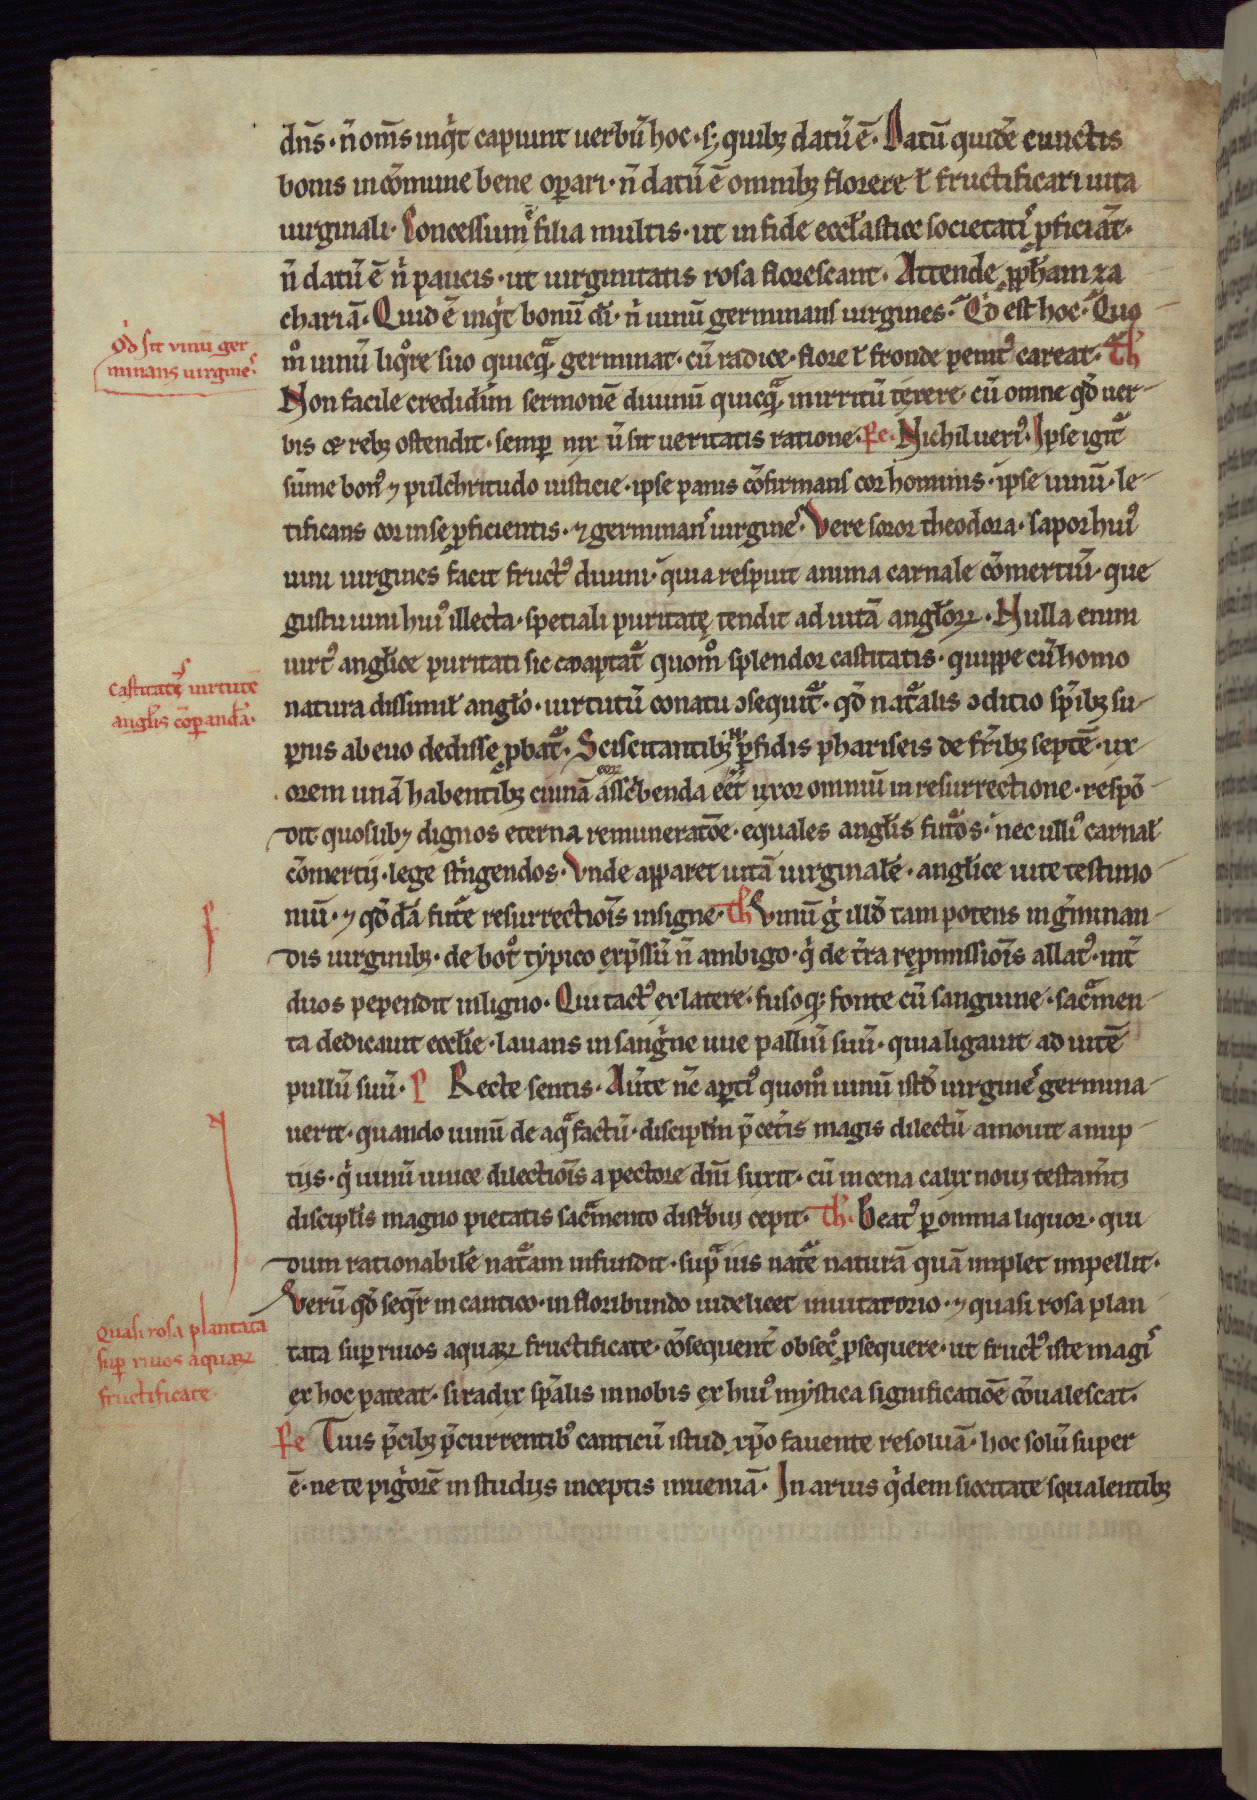 dn̄s · n̄ om̄s inq͛t capiunt uerbū hoc · sꝫ quibꝫ datū ē · Datū quidē cunctis
bonis in cōmune bene oꝑari · n̄ datū ē omnibꝫ florere ł fructificari uita
uirginali · Concessum ē filia multis · ut in fide eccl̄astice societatis ꝓficiāt ·
n̄ datū ē n͛ paucis · ut uirginitatis rosa florescant · Attende ꝓph̄am za
chariā · Quid ē inq͛t bonū ei · n͛ uinū germinans uirgines · Qd̄ est hoc · Quo
m̊ uinū liq̊re suo quicqᷓ germinat · cū radice · flore ł fronde penitꝰ careat · Th
Non facile credidim̄ sermonē diuinū quicqᷓ inirritū terere · cū omne qd̄ uer
bis ⁊ rebꝫ ostendit · semꝑ nix̄ sit ueritatis ratione · Pe · Nichil ueriꝰ · Ipse igit᷑
sūme bonꝰ ⁊ pulchritudo iusticie · ipse panis cōfirmans cor hominis · ipse uinū · le
tificans cor in se ꝓficientis · ⁊ germinans uirgines · Vere soror theodora · sapor huiꝰ
uini uirgines facit fructꝰ diuini · quia respuit anima carnale cōmertiū · que
gustu uini huiꝰ illecta · spetiali puritate tendit ad uitā angl̄oꝝ · Nulla enim
uirtꝰ angl̄ice puritati sic coaptat᷑ quom̊ splendor castitatis · quippe cū homo
natura dissimil̄ angl̄o · uirtutū conatu ꝯsequit᷑ · qd̄ nat᷑alis ꝯditio sp̄ribꝫ su
ꝑius ab euo dedisse ꝓbat᷑ · Sciscitantibꝫ ꝑfidis phariseis de fr̄ibꝫ septē · ux
orem unā habentibꝫ cui eoꝝ nā asscͥbenda eēt uxor omniū in resurrectione · respō
dit quoslibꝫ dignos eterna remuneratōe · equales angl̄is futᷣos · nec ulliꝰ carnał
cōmertij · lege stͥngendos · Vnde apparet uitā uirginalē · angl̄ice uite testimo
niū · ⁊ qd̄dā futᷣe resurrectiōis insigne · Th Vinū g͛ illd̄ tam potens in g͛minan
dis uirginibꝫ · de bot͛ typico exp̄ssū n̄ ambigo · q͛ de t͛ra repmissiōis allatꝰ · int͛
duos pependit in ligno · Qui tactꝰ ex latere · fusoqꝫ fonte cū sanguine · sac͛men
ta dedicauit eccl̄ie · lauans in sang͛ne uue palliū suū · quia ligauit ad uitē
pullū suū · P Recte sentis · Aut̄e nc̄ aꝑtiꝰ quom̊ uinū istd̄ uirgines germina
uerit · quando uinū de aqᷓ factū · discipl̄m p̄ cet͛is magis dilectū amouit a nup
tijs · q͛ uinū uiuice dilectiōis a pectore dn̄i suxit · cū in cena calix noui testam̄ti
discipl̄is magno pietatis sac͛mento distͥbui cepit · Th · Beatꝰ ꝑ omnia liquor · qui
dum rationabilē nat᷑am infundit · sup᷑ ius nat᷑e naturā quā implet impellit ·
Verū qd̄ seq͛r in cantico · in floribundo uidelicet inuitatorio · ⁊ quasi rosa plan
tata suꝑ riuos aquaꝝ fructificate · cōsequent͛ obsec̊ ꝓsequere · ut fructꝰ iste magis
ex hoc pateat · si radix sp̄alis in nobis ex huiꝰ mystica significatiōe cōualescat ·
Pe Tuis p̄cibꝫ p̄currentibꝰ canticū istud xp̄o fauente resoluā · hoc solū super
ē · ne te pig͛orē in studijs inceptis inueniā · In aruis q͛dem siccitate squalentibꝫ
Qd̄ sit vinū ger
minans uirgines
castitatē uirtute
angl̄is cōꝑandā ·
Quasi rosa plantata
suꝑ riuos aquaꝝ
fructificate ·